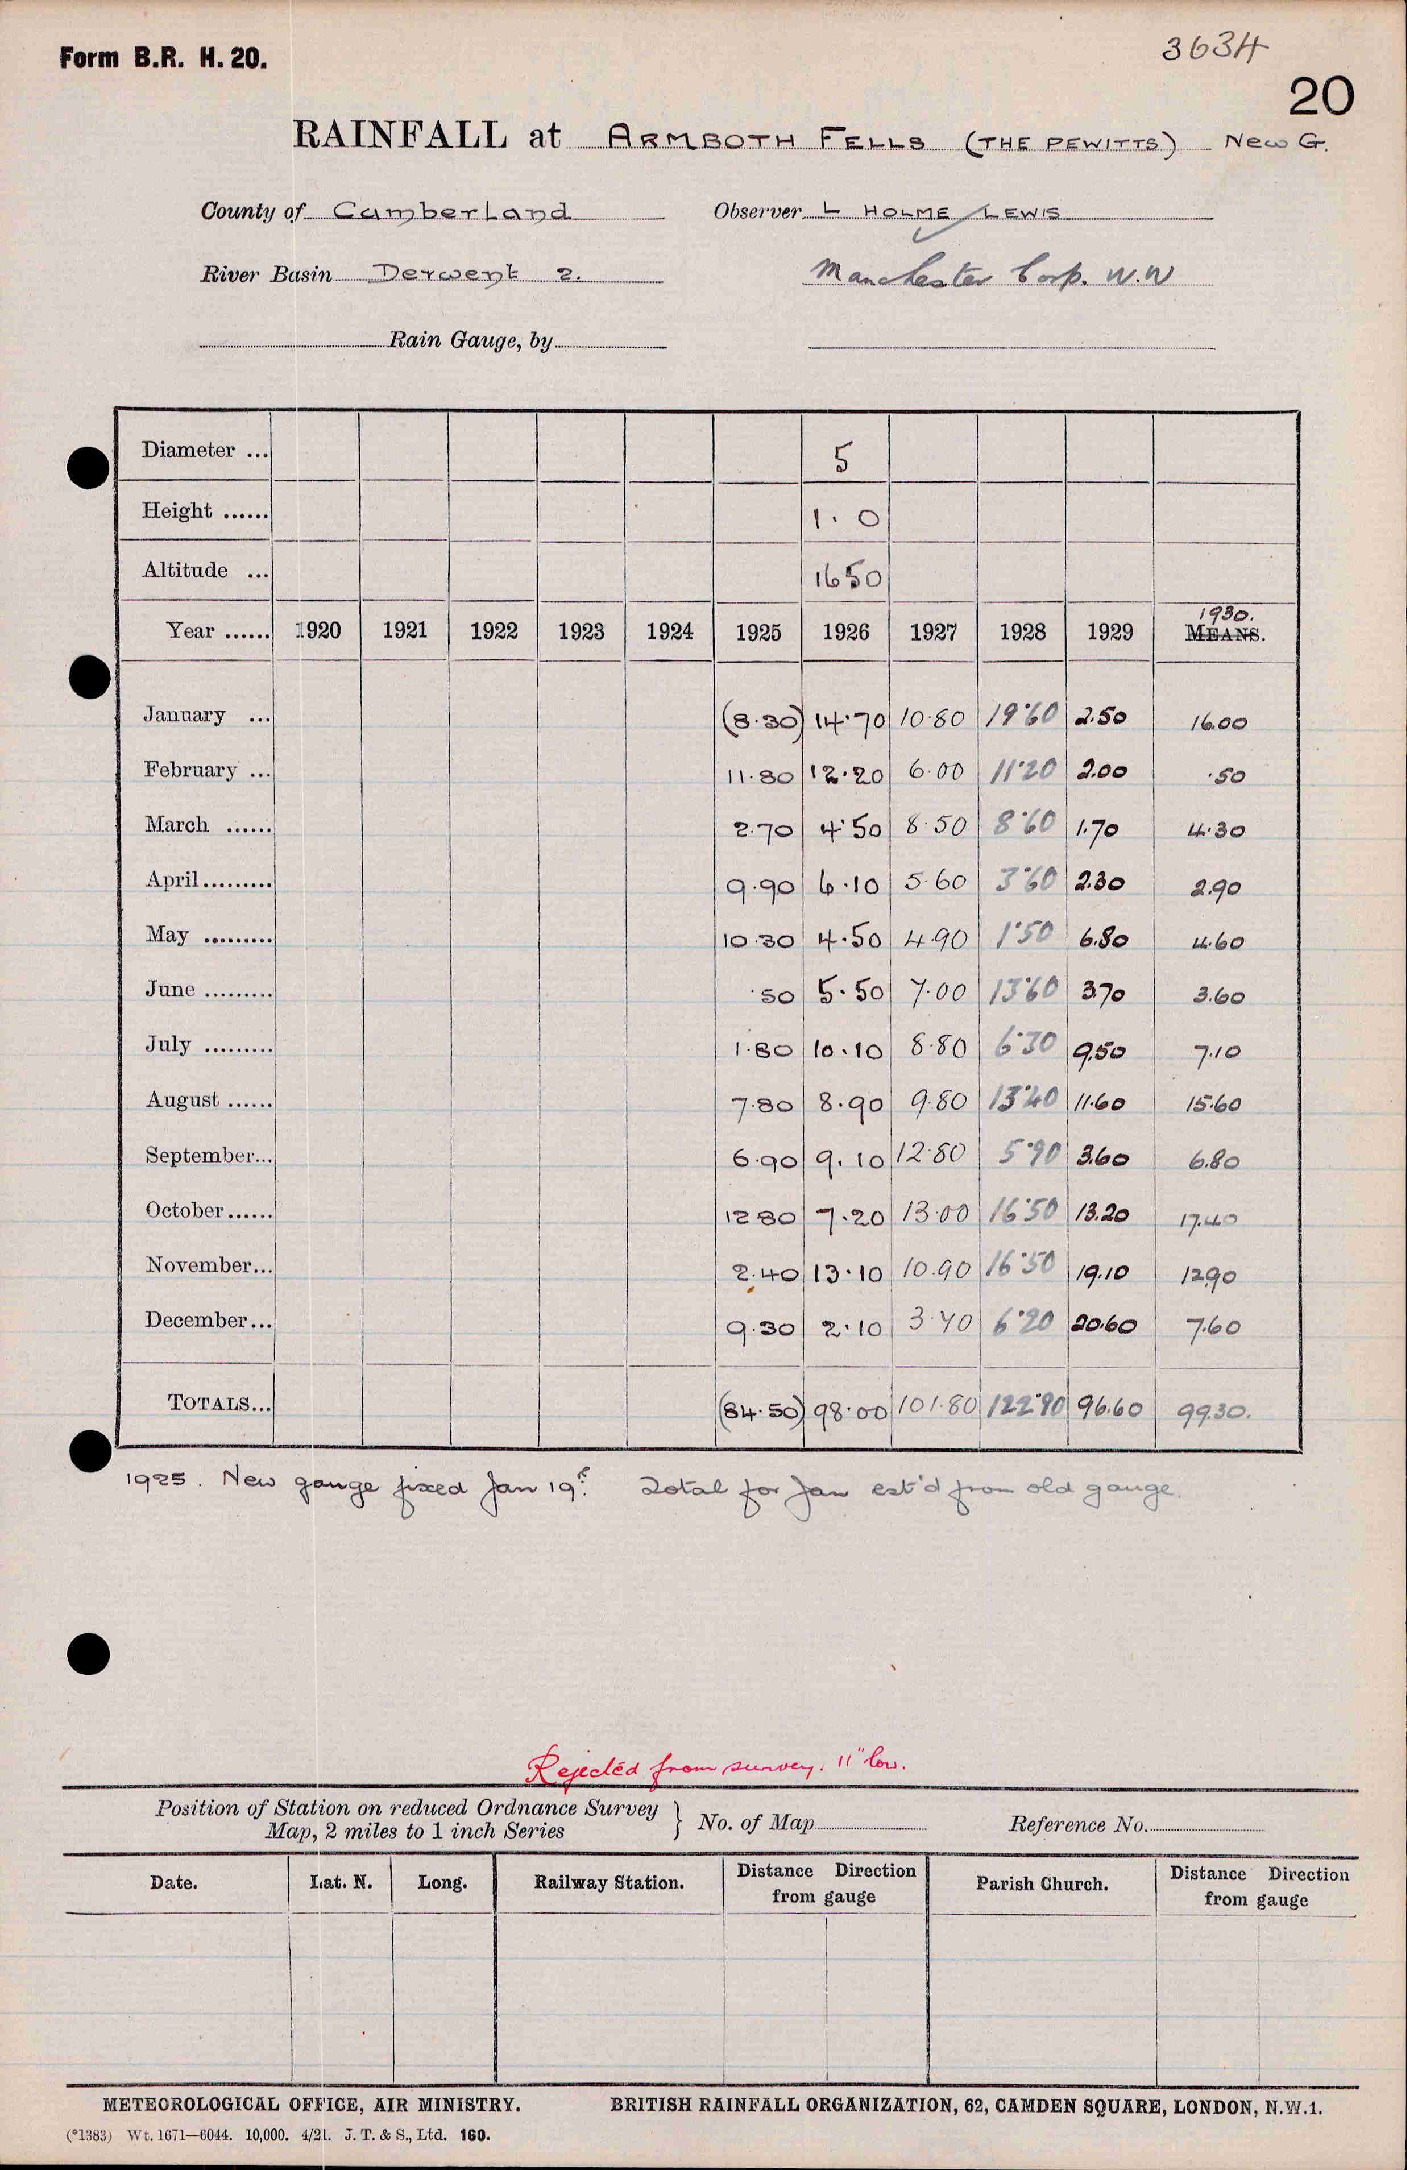 Form B.R. H. 20.
3634
20
RAINFALL at ARMBOTH FELLS (THE PEWITTS) New G.
County of Cumberland Observer L HOLME LEWIS
River Basin Derwent 2. Manchester Corp. W.W
Rain Gauge, by
Diameter ... 5
Height ...... 1·0
Altitude ... 1650
1930.
Year ...... 1920 1921 1922 1923 1924 1925 1926 1927 1928 1929 MEANS.
January ... (8·30) 14·70 10·80 19·60 2.50 16.00
February ... 11·80 12·20 6·00 11·20 2.00 ·50
March ...... 2·70 4·50 8·50 8·60 1.70 4·30
April ......... 9·90 6·10 5·60 3·60 2.30 2.90
May ......... 10·30 4·50 4·90 1·50 6.80 4.60
June ......... ·50 5·50 7·00 13·60 3.70 3.60
July ......... 1·80 10·10 8·80 6·30 9.50 7.10
August ...... 7·80 8·90 9·80 13·40 11.60 15.60
September... 6·90 9·10 12·80 5·90 3.60 6.80
October...... 12·80 7·20 13·00 16·50 13.20 17.40
November... 2·40 13·10 10.90 16·50 19.10 12.90
December... 9·30 2·10 3·70 6·20 20.60 7.60
TOTALS... (84·50) 98·00 101·80 122·90 96.60 99.30.
1925. New gauge fixed Jan 19th. Total for Jan est'd from old gauge.
Rejected from survey. 11" low.
Position of Station on reduced Ordnance Survey
Map, 2 miles to 1 inch Series } No. of Map Reference No.
Date. Lat. N. Long. Railway Station. Distance Direction from gauge Parish Church. Distance Direction from gauge
METEOROLOGICAL OFFICE, AIR MINISTRY. BRITISH RAINFALL ORGANIZATION, 62, CAMDEN SQUARE, LONDON, N.W.1.
(*1383) Wt. 1671—6044. 10,000. 4/21. J. T. & S., Ltd. 160.